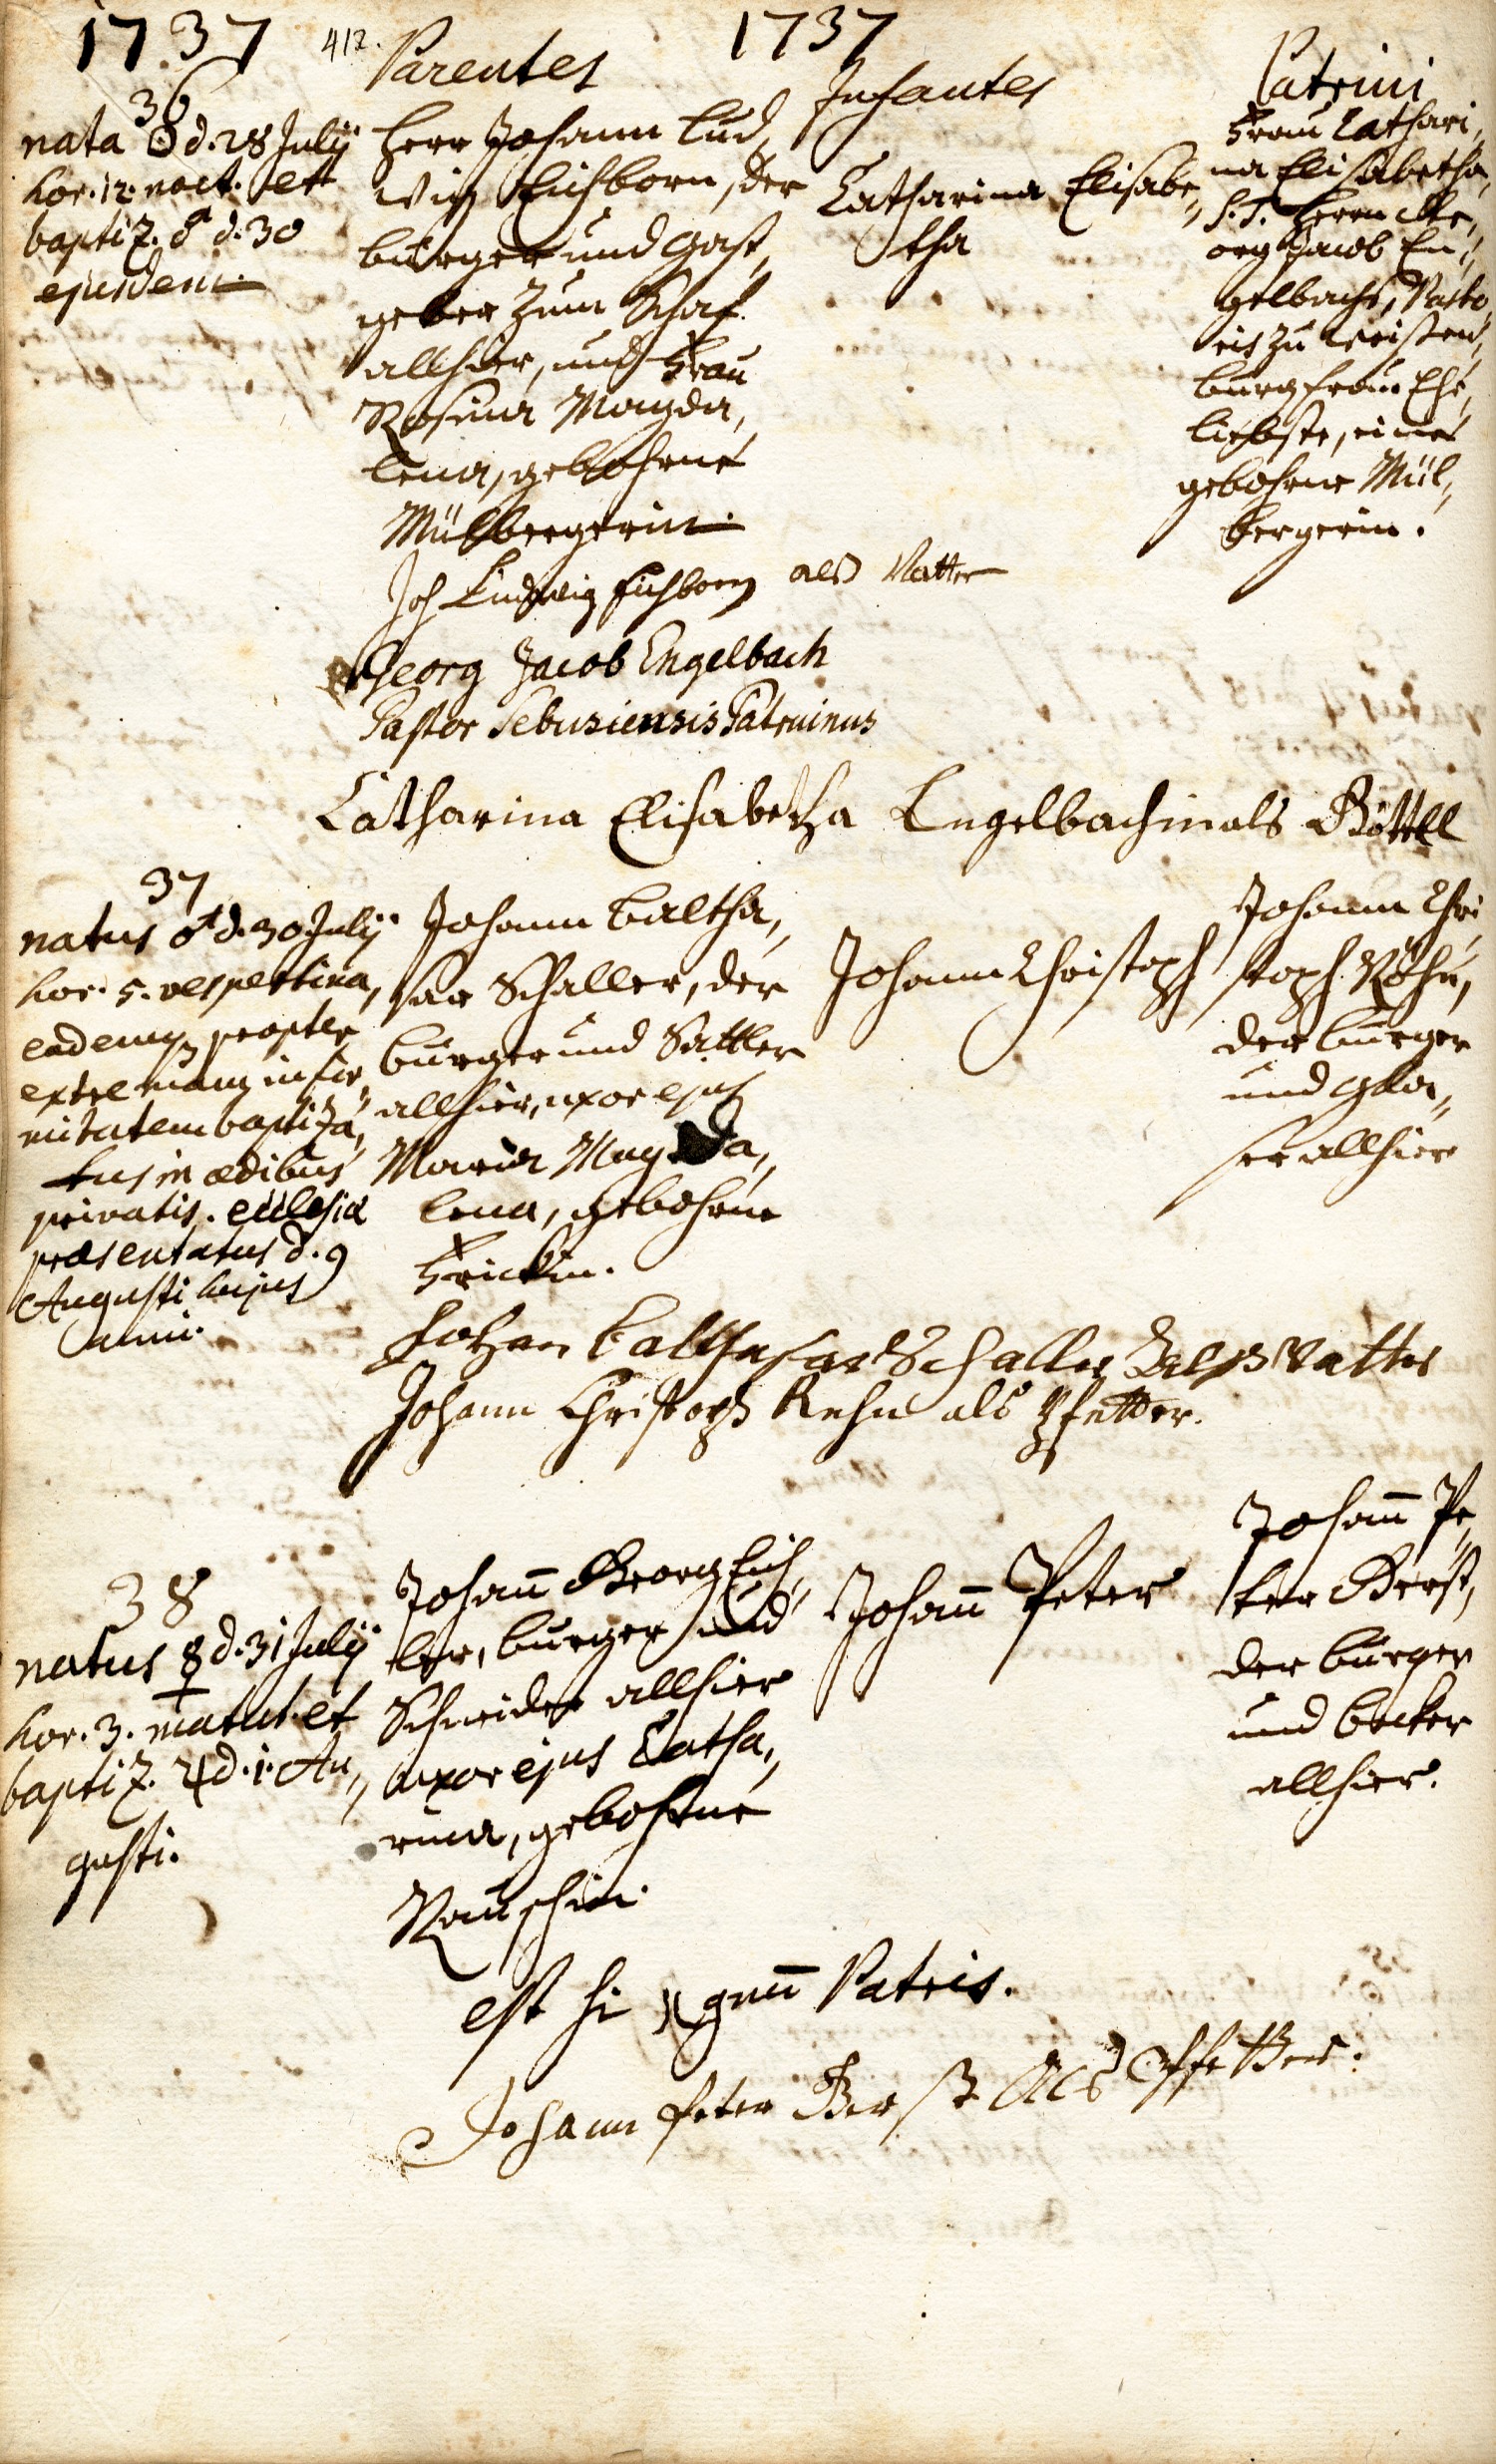 1737 412. 1737
Parentes
Infantes
Patrini
36
nata ☉ d. 28 July
hor. 12. noct. et
baptiz. ♂ d. 30
ejusdem.
Herr Johann Lud,,
wig Eichborn, der
burger und Gast,,
geber zum Schaf
allhier, und Frau
Rosina Magda,,
lena, gebohrne
Mülbergerin.
Catharina Elisabe,,
tha
Frau Cathari,,
na Elisabetha,
S. T. Herrn Ge,,
org Jacob En,,
gelbachs, Pasto,,
ris zu Weissen,,
burg Frau Ehe,,
liebste, eine
gebohrne Mül,,
bergerin.
Joh Ludwig Eichborn als Vatter
Georg Jacob Engelbach
Pastor Sebusiensis Patruinus
Catharina Elisabetha Engelbachin als Göttel
37
natus ♂ d. 30 July
hor. 5. vespertina,
eademq propter
extremam infir,,
mitatem baptiza,,
tus in ædibus
privatis. ecclesiæ
præsentatus d. 9
Augusti hujus
anni.
Johann Baltha,,
sar Schaller, der
burger und Sattler
allhier, uxor ejus
Maria Magda,,
lena, gebohrne
Frickin.
Johann Christoph
Johann Chri,,
stoph Röhn,
der burger
und Gla,,
ser allhier
Johan Balthasar Schaller Alß Vatter
Johann Christoph Rehn als Pfetter.
38
natus ☿ d. 31 July
hor. 3. matut. et
baptiz. ♃ d. 1. Au,,
gusti.
Johan̄ Georg Eich,,
ler, burger und
Schneider allhier
uxor ejus Catha,,
rina, gebohrne
Rauschin.
Johan̄ Peter
Johan̄ Pe,,
ter Gerst,
der burger
und becker
allhier.
est si gnum̄ Patris.
Johann Peter Gerst Als Pfetter.